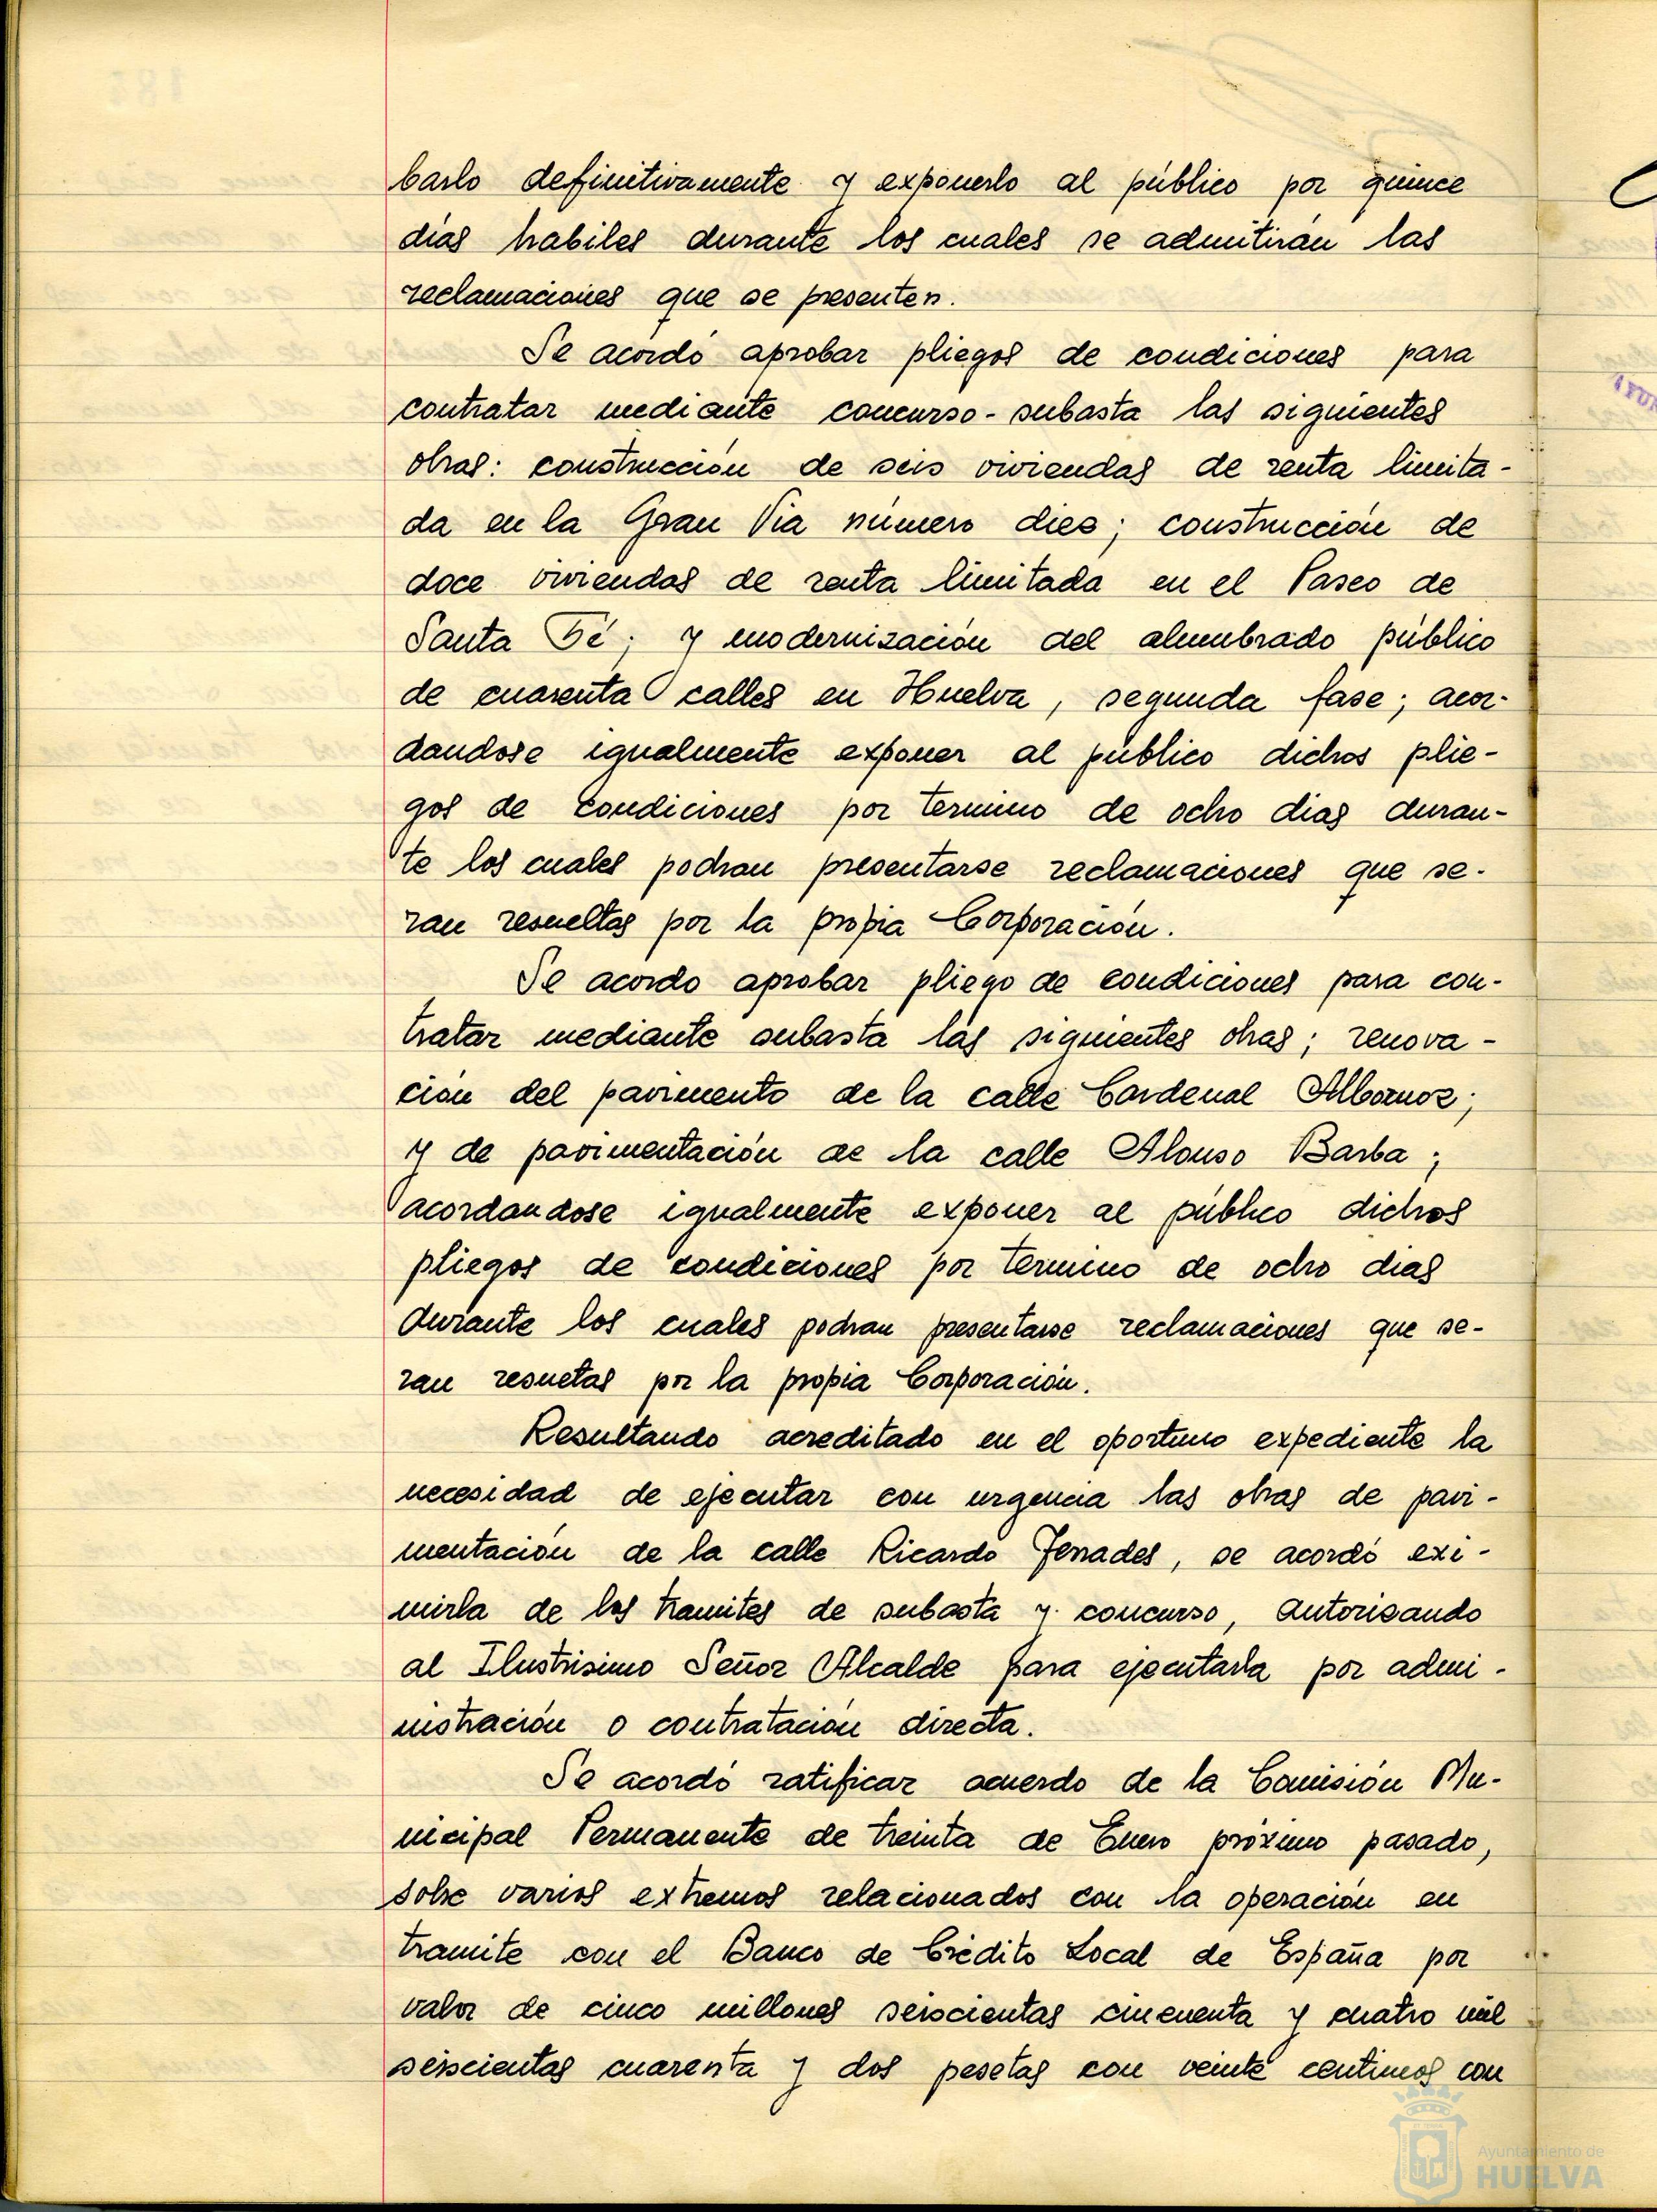 barlo definitivamente y exponerlo al público por quince
días habiles durante los cuales se admitirán las
reclamaciones que se presenten.
Se acordó aprobar pliegos de condiciones para
contratar mediante concurso-subasta las siguientes
obras: construcción de seis viviendas de renta limita-
da en la Gran Via número diez; construcción de
doce viviendas de renta limitada en el Paseo de
Santa Fé; y modernización del alumbrado público
de cuarenta calles en Huelva, segunda fase; acor-
dandose igualmente exponer al público dichos plie-
gos de condiciones por termino de ocho dias duran-
te los cuales podran presentarse reclamaciones que se-
ran resueltas por la propia Corporación.
Se acordo aprobar pliego de condiciones para con-
tratar mediante subasta las siguientes obras; renova-
ción del pavimento de la calle Cardenal Albornoz;
y de pavimentación de la calle Alonso Barba;
acordandose igualmente exponer al público dichos
pliegos de condiciones por termino de ocho dias
durante los cuales podran presentarse reclamaciones que se-
ran resuetas por la propia Corporación.
Resultando acreditado en el oportuno expediente la
necesidad de ejecutar con urgencia las obras de pavi-
mentación de la calle Ricardo Terrades, se acordó exi-
mirla de los tramites de subasta y concurso, autorizando
al Ilustrisimo Señor Alcalde para ejecutarla por admi-
nistración o contratación directa.
Se acordó ratificar acuerdo de la Comisión Mu-
nicipal Permanente de treinta de Enero próximo pasado,
sobre varios extremos relacionados con la operación en
tramite con el Banco de Crédito Local de España por
valor de cinco millones seiscientas cincuenta y cuatro mil
seiscientas cuarenta y dos pesetas con veinte centimos con
Ayuntamiento de
HUELVA